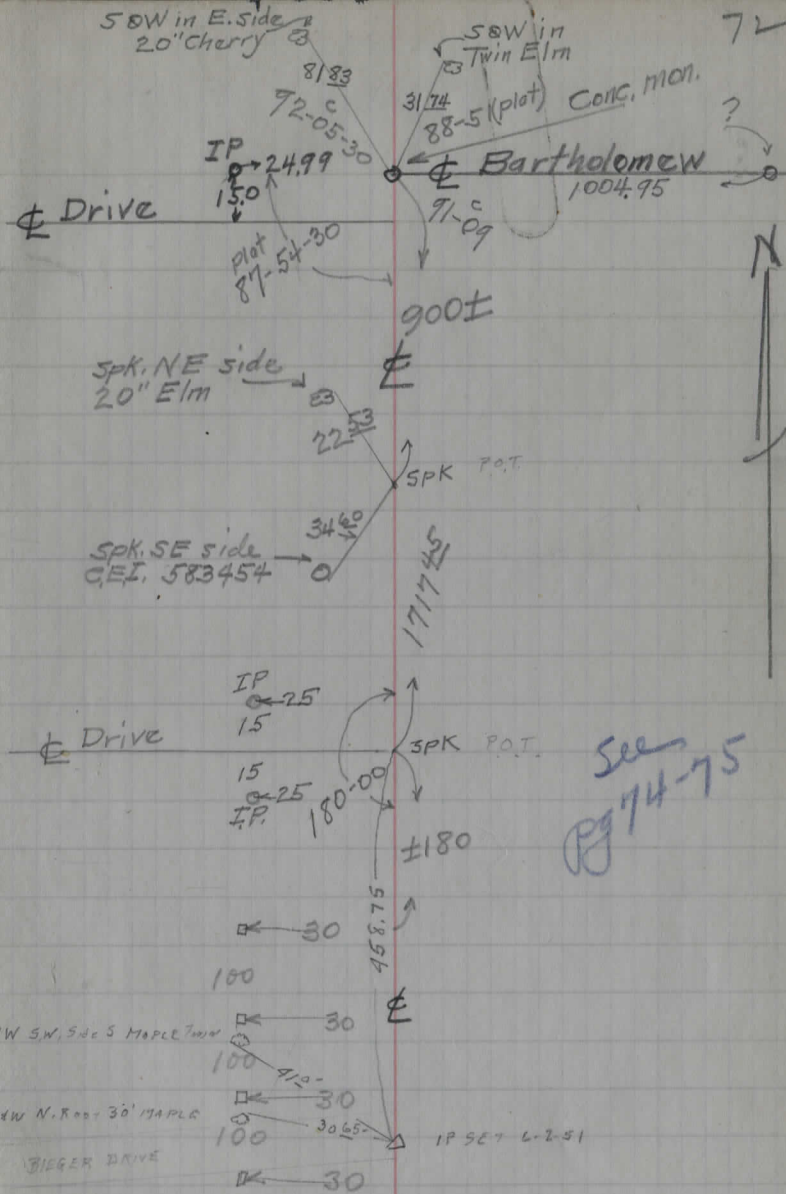 SOW in E. side
20" Cherry
SOW in
Twin Elm
72
81 83
31 74
92-05-30
c
88-51 (plat)
Conc. mon.
?
IP
24.99
15.0
℄ Bartholomew
1004.95
℄ Drive
91-09
c
plat
87-54-30
N
900±
℄
Spk. NE side
20" Elm
22 53
SPK P.O.T.
34 60
Spk. SE side
C.E.I. 583454
1717 45
IP
25
15
℄ Drive
SPK P.O.T.
15
25
I.P.
180-00
See
pg 74-75
±180
458.75
30
100
℄
30
W S.W. Side S MAPLE
100
41.0
30
W N. Root 30" MAPLE
30 65
100
IP SET 6-2-51
BIEGER DRIVE
30